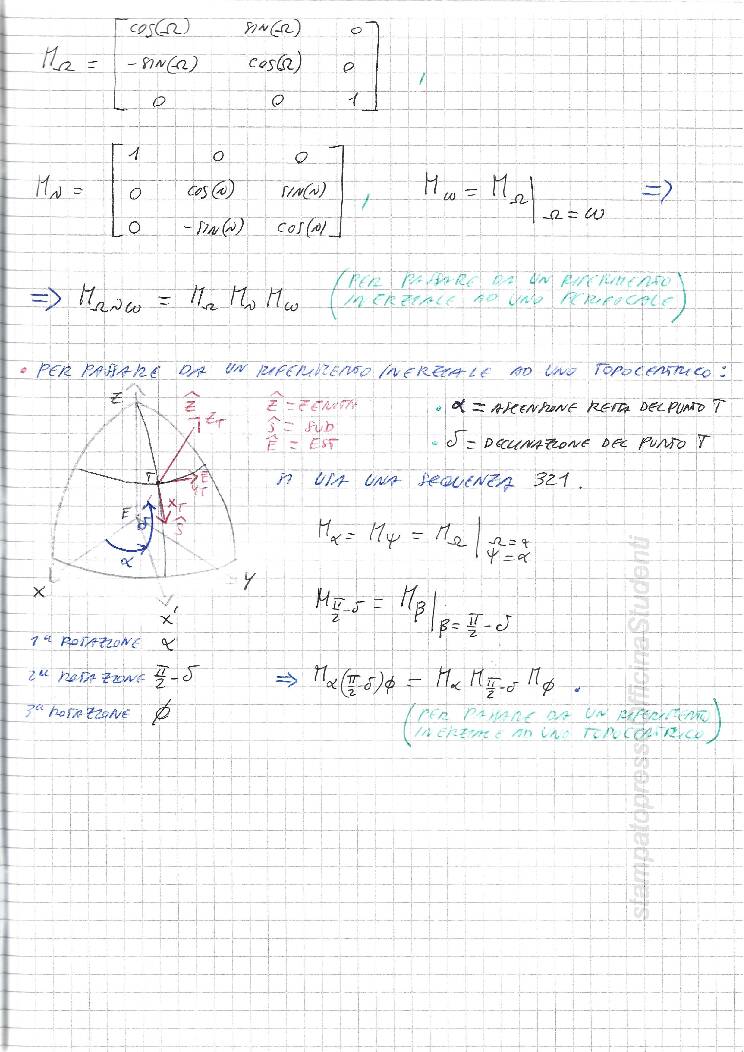 M_Ω = [ cos(Ω) sin(Ω) 0
-sin(Ω) cos(Ω) 0
0 0 1 ] ,
M_N = [ 1 0 0
0 cos(N) sin(N)
0 -sin(N) cos(N) ] , M_ω = M_Ω |_Ω=ω ⇒
⇒ M_ΩNω = M_Ω M_N M_ω (PER PASSARE DA UN RIFERIMENTO
INERZIALE AD UNO PERIFOCALE)
• PER PASSARE DA UN RIFERIMENTO INERZIALE AD UNO TOPOCENTRICO:
Z Ẑ Z_T Ẑ = ZENITH • α = ASCENSIONE RETTA DEL PUNTO T
Ŝ = SUD
Ê = EST • δ = DECLINAZIONE DEL PUNTO T
T Ê Y_T SI USA UNA SEQUENZA 321.
X_T
E δ Ŝ
α
M_α = M_ψ = M_Ω |_Ω=ψ ψ=α
X Y
X'
M_π/2-δ = M_β |_β=π/2-δ
1ª ROTAZIONE α
2ª ROTAZIONE π/2-δ ⇒ M_α(π/2-δ)ϕ = M_α M_π/2-δ M_ϕ .
3ª ROTAZIONE ϕ
(PER PASSARE DA UN RIFERIMENTO
INERZIALE AD UNO TOPOCENTRICO)
stampatopressoOfficinaStudenti